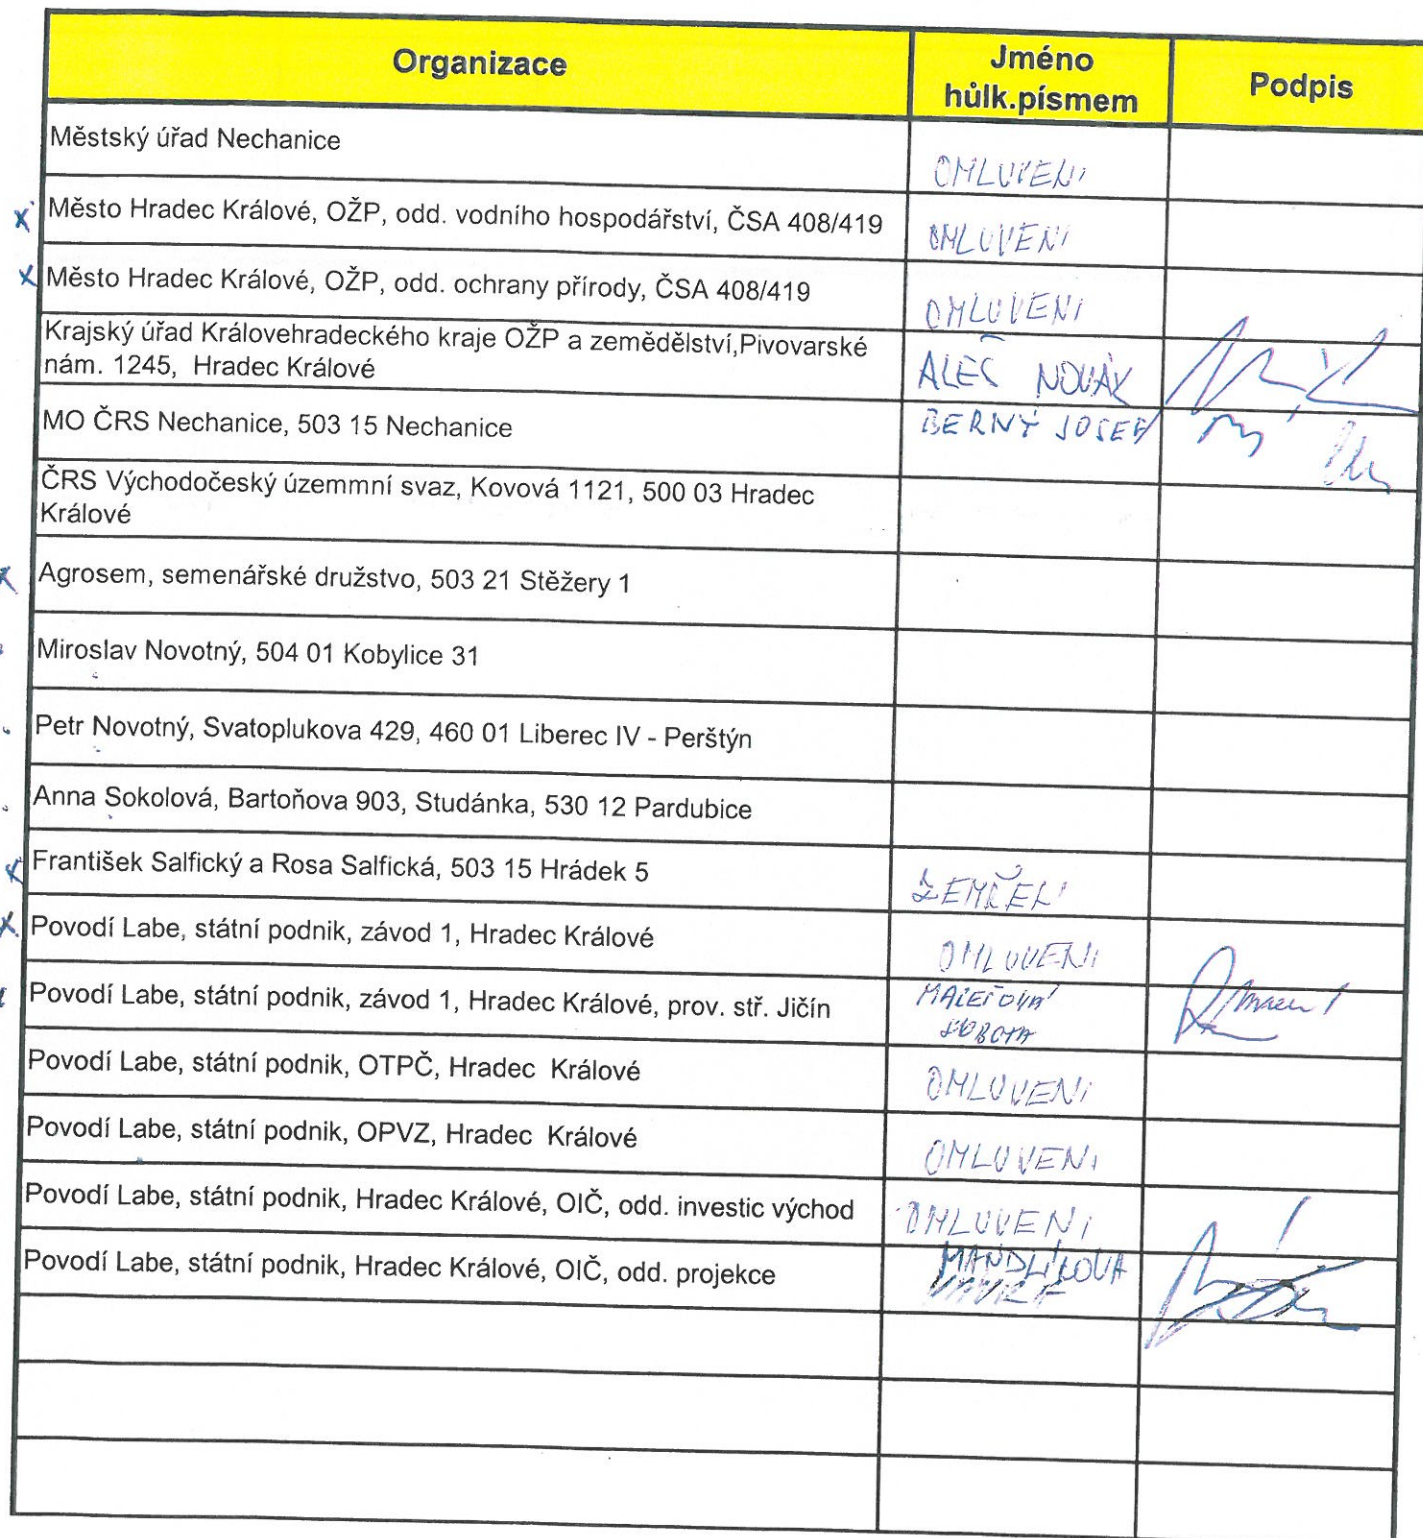 Organizace
Jméno
hůlk.písmem
Podpis
Městský úřad Nechanice
OMLUVENI
x Město Hradec Králové, OŽP, odd. vodního hospodářství, ČSA 408/419
OMLUVENI
x Město Hradec Králové, OŽP, odd. ochrany přírody, ČSA 408/419
OMLUVENI
Krajský úřad Královehradeckého kraje OŽP a zemědělství,Pivovarské
nám. 1245, Hradec Králové
ALEŠ NOVÁK
MO ČRS Nechanice, 503 15 Nechanice
BERNÝ JOSEF
ČRS Východočeský územmní svaz, Kovová 1121, 500 03 Hradec
Králové
x Agrosem, semenářské družstvo, 503 21 Stěžery 1
Miroslav Novotný, 504 01 Kobylice 31
Petr Novotný, Svatoplukova 429, 460 01 Liberec IV - Perštýn
Anna Sokolová, Bartoňova 903, Studánka, 530 12 Pardubice
x František Salfický a Rosa Salfická, 503 15 Hrádek 5
ZEMŘELI
x Povodí Labe, státní podnik, závod 1, Hradec Králové
OMLUVENI
Povodí Labe, státní podnik, závod 1, Hradec Králové, prov. stř. Jičín
SOBOTA
Povodí Labe, státní podnik, OTPČ, Hradec Králové
OMLUVENI
Povodí Labe, státní podnik, OPVZ, Hradec Králové
OMLUVENI
Povodí Labe, státní podnik, Hradec Králové, OIČ, odd. investic východ
OMLUVENI
Povodí Labe, státní podnik, Hradec Králové, OIČ, odd. projekce
MANDLÍKOVA